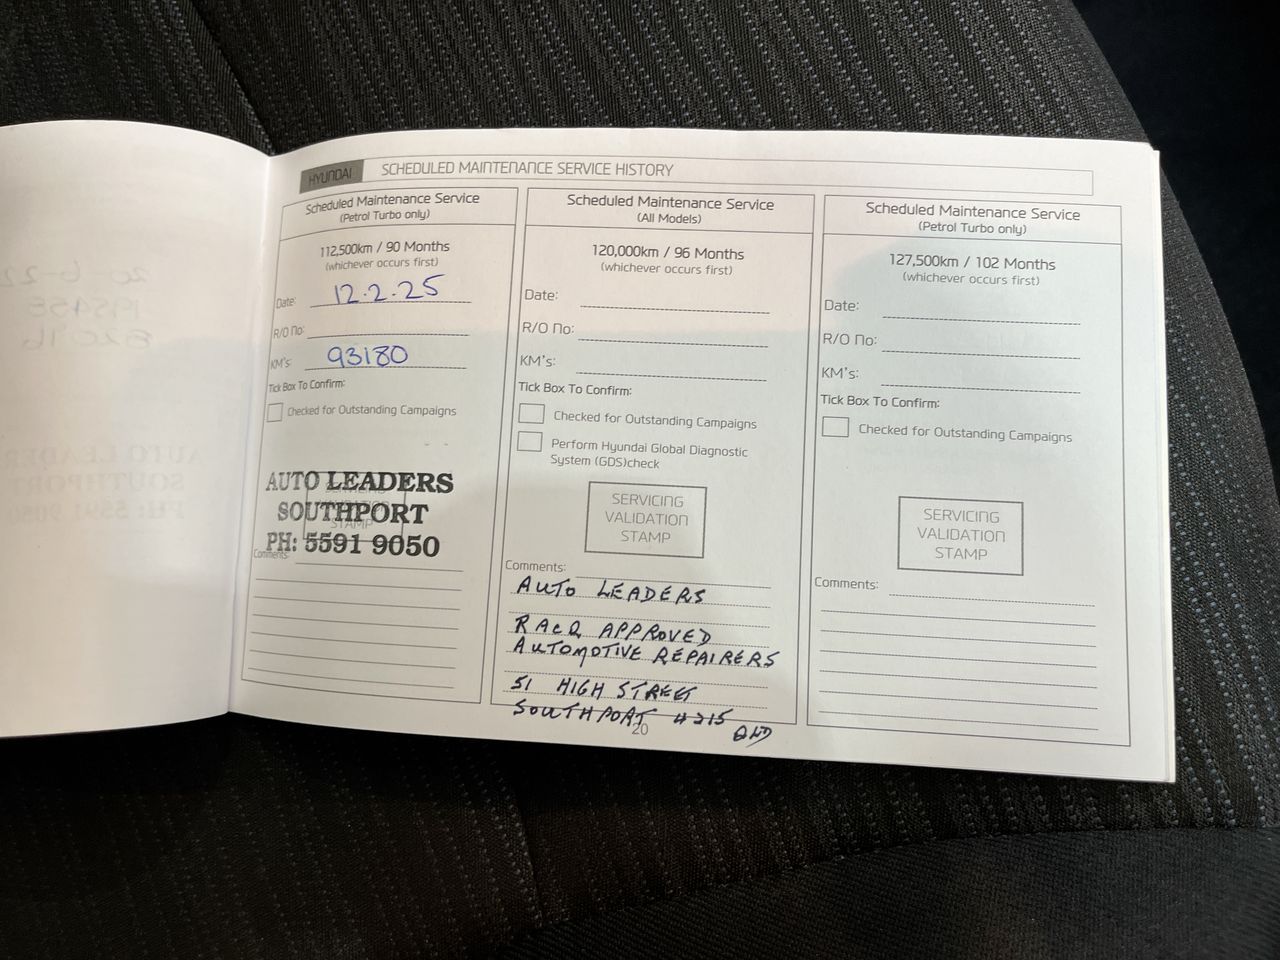 HYUNDAI
SCHEDULED MAINTENANCE SERVICE HISTORY
Scheduled Maintenance Service
(Petrol Turbo only)
112,500km / 90 Months
(whichever occurs first)
Date: 12.2.25
R/O No:
KM's: 93180
Tick Box To Confirm:
Checked for Outstanding Campaigns
AUTO LEADERS
SOUTHPORT
PH: 5591 9050
Comments:
Scheduled Maintenance Service
(All Models)
120,000km / 96 Months
(whichever occurs first)
Date:
R/O No:
KM's:
Tick Box To Confirm:
Checked for Outstanding Campaigns
Perform Hyundai Global Diagnostic
System (GDS)check
SERVICING
VALIDATION
STAMP
Comments:
AUTO LEADERS
RACQ APPROVED
AUTOMOTIVE REPAIRERS
51 HIGH STREET
SOUTHPORT 4215
QLD
Scheduled Maintenance Service
(Petrol Turbo only)
127,500km / 102 Months
(whichever occurs first)
Date:
R/O No:
KM's:
Tick Box To Confirm:
Checked for Outstanding Campaigns
SERVICING
VALIDATION
STAMP
Comments:
20